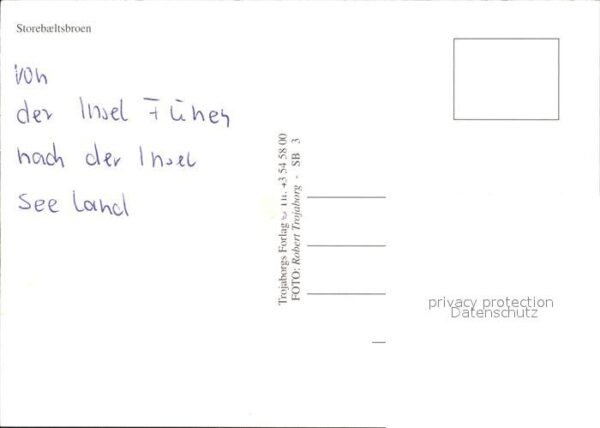 Storebæltsbroen
von
der Insel Fünen
nach der Insel
see Land
Trojaborgs Forlag © Tlf. +3 54 58 00
FOTO: Robert Trojaborg - SB 3
privacy protection
Datenschutz